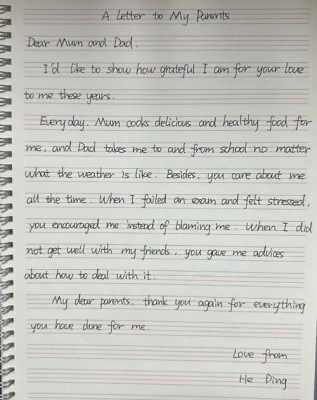 A Letter to My Parents
Dear Mum and Dad,
I'd like to show how grateful I am for your love
to me these years.
Everyday, Mum cooks delicious and healthy food for
me, and Dad takes me to and from school no matter
what the weather is like. Besides, you care about me
all the time. When I failed an exam and felt stressed,
you encouraged me instead of blaming me. When I did
not get well with my friends, you gave me advices
about how to deal with it.
My dear parents, thank you again for everything
you have done for me.
Love from
He Ping